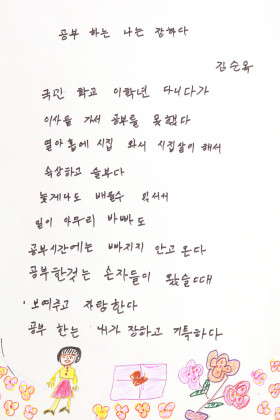 공부 하는 나는 장하다
김순옥
국민 학교 이학년 다니다가
이사을 가서 공부를 못했다
열아홉에 시집 와서 시집살이 해서
속상하고 슬부다
늦게나도 배울수 있서서
일이 아무리 바빠도
공부시간에는 빠지지 안고온다
공부한것는 손자들이 왔슬때
보여주고 자랑한다
공부 한는 내가 장하고 기특하다